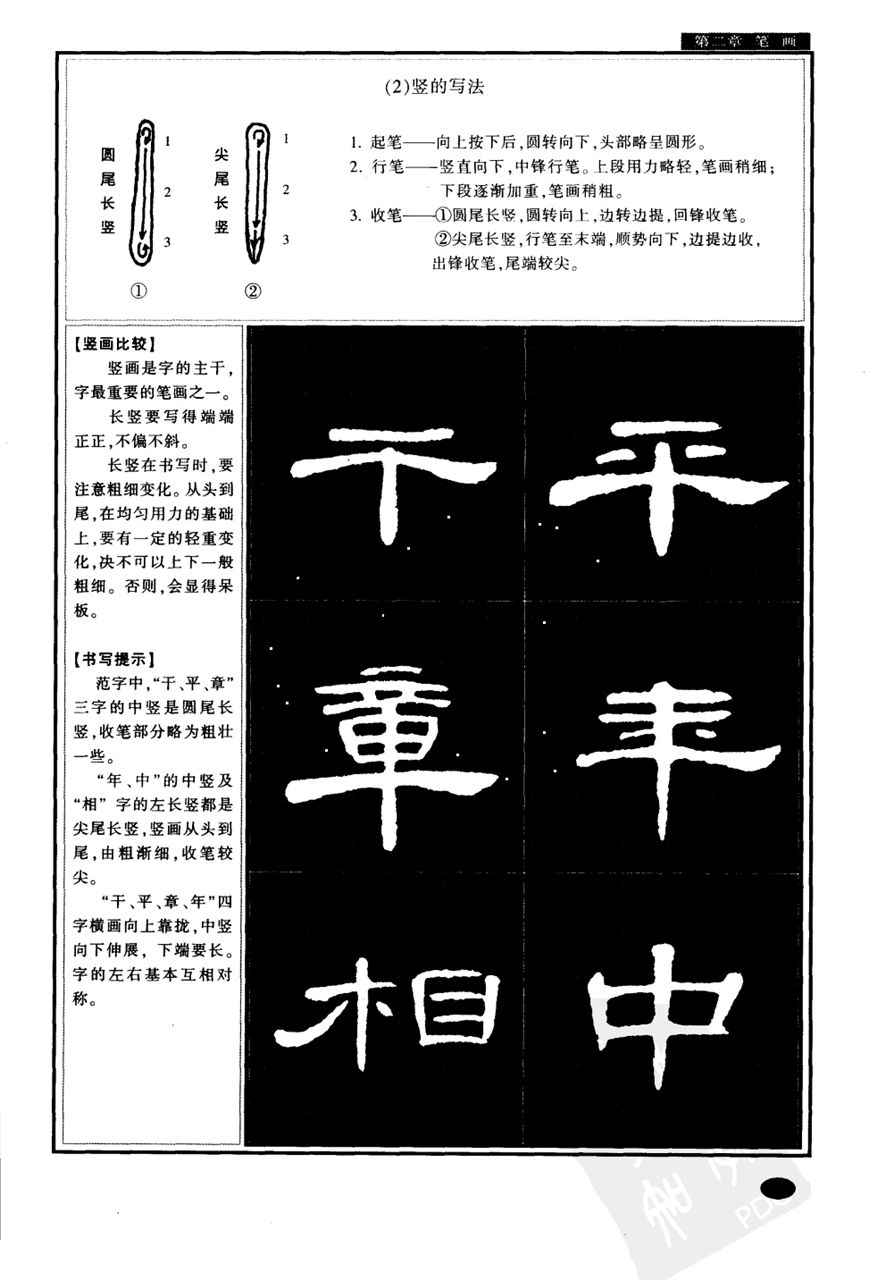 第二章 笔 画
(2)竖的写法
圆尾长竖
1
2
3
①
尖尾长竖
1
2
3
②
1. 起笔——向上按下后,圆转向下,头部略呈圆形。
2. 行笔——竖直向下,中锋行笔。上段用力略轻,笔画稍细;
下段逐渐加重,笔画稍粗。
3. 收笔——①圆尾长竖,圆转向上,边转边提,回锋收笔。
②尖尾长竖,行笔至末端,顺势向下,边提边收,
出锋收笔,尾端较尖。
【竖画比较】
竖画是字的主干,
字最重要的笔画之一。
长竖要写得端端
正正,不偏不斜。
长竖在书写时,要
注意粗细变化。从头到
尾,在均匀用力的基础
上,要有一定的轻重变
化,决不可以上下一般
粗细。否则,会显得呆
板。
【书写提示】
范字中,“干、平、章”
三字的中竖是圆尾长
竖,收笔部分略为粗壮
一些。
“年、中”的中竖及
“相”字的左长竖都是
尖尾长竖,竖画从头到
尾,由粗渐细,收笔较
尖。
“干、平、章、年”四
字横画向上靠拢,中竖
向下伸展,下端要长。
字的左右基本互相对
称。
干 平
章 年
相 中
PDG